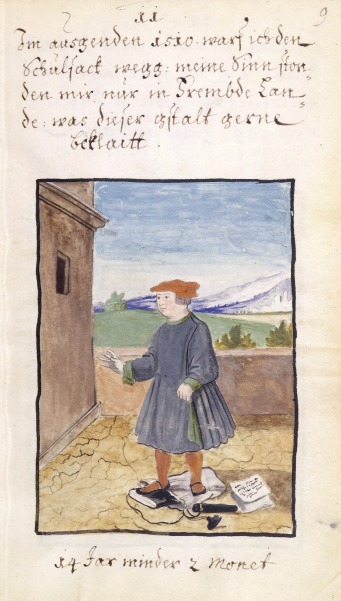 11
9
Im ausgenden 1510. warf ich den
Schulsack wegg: meine Sinn ston-
den mir nur in Frembde Lan-
de: was dieser gstalt gerne
beklaitt.
14 Jar minder 2 Monet